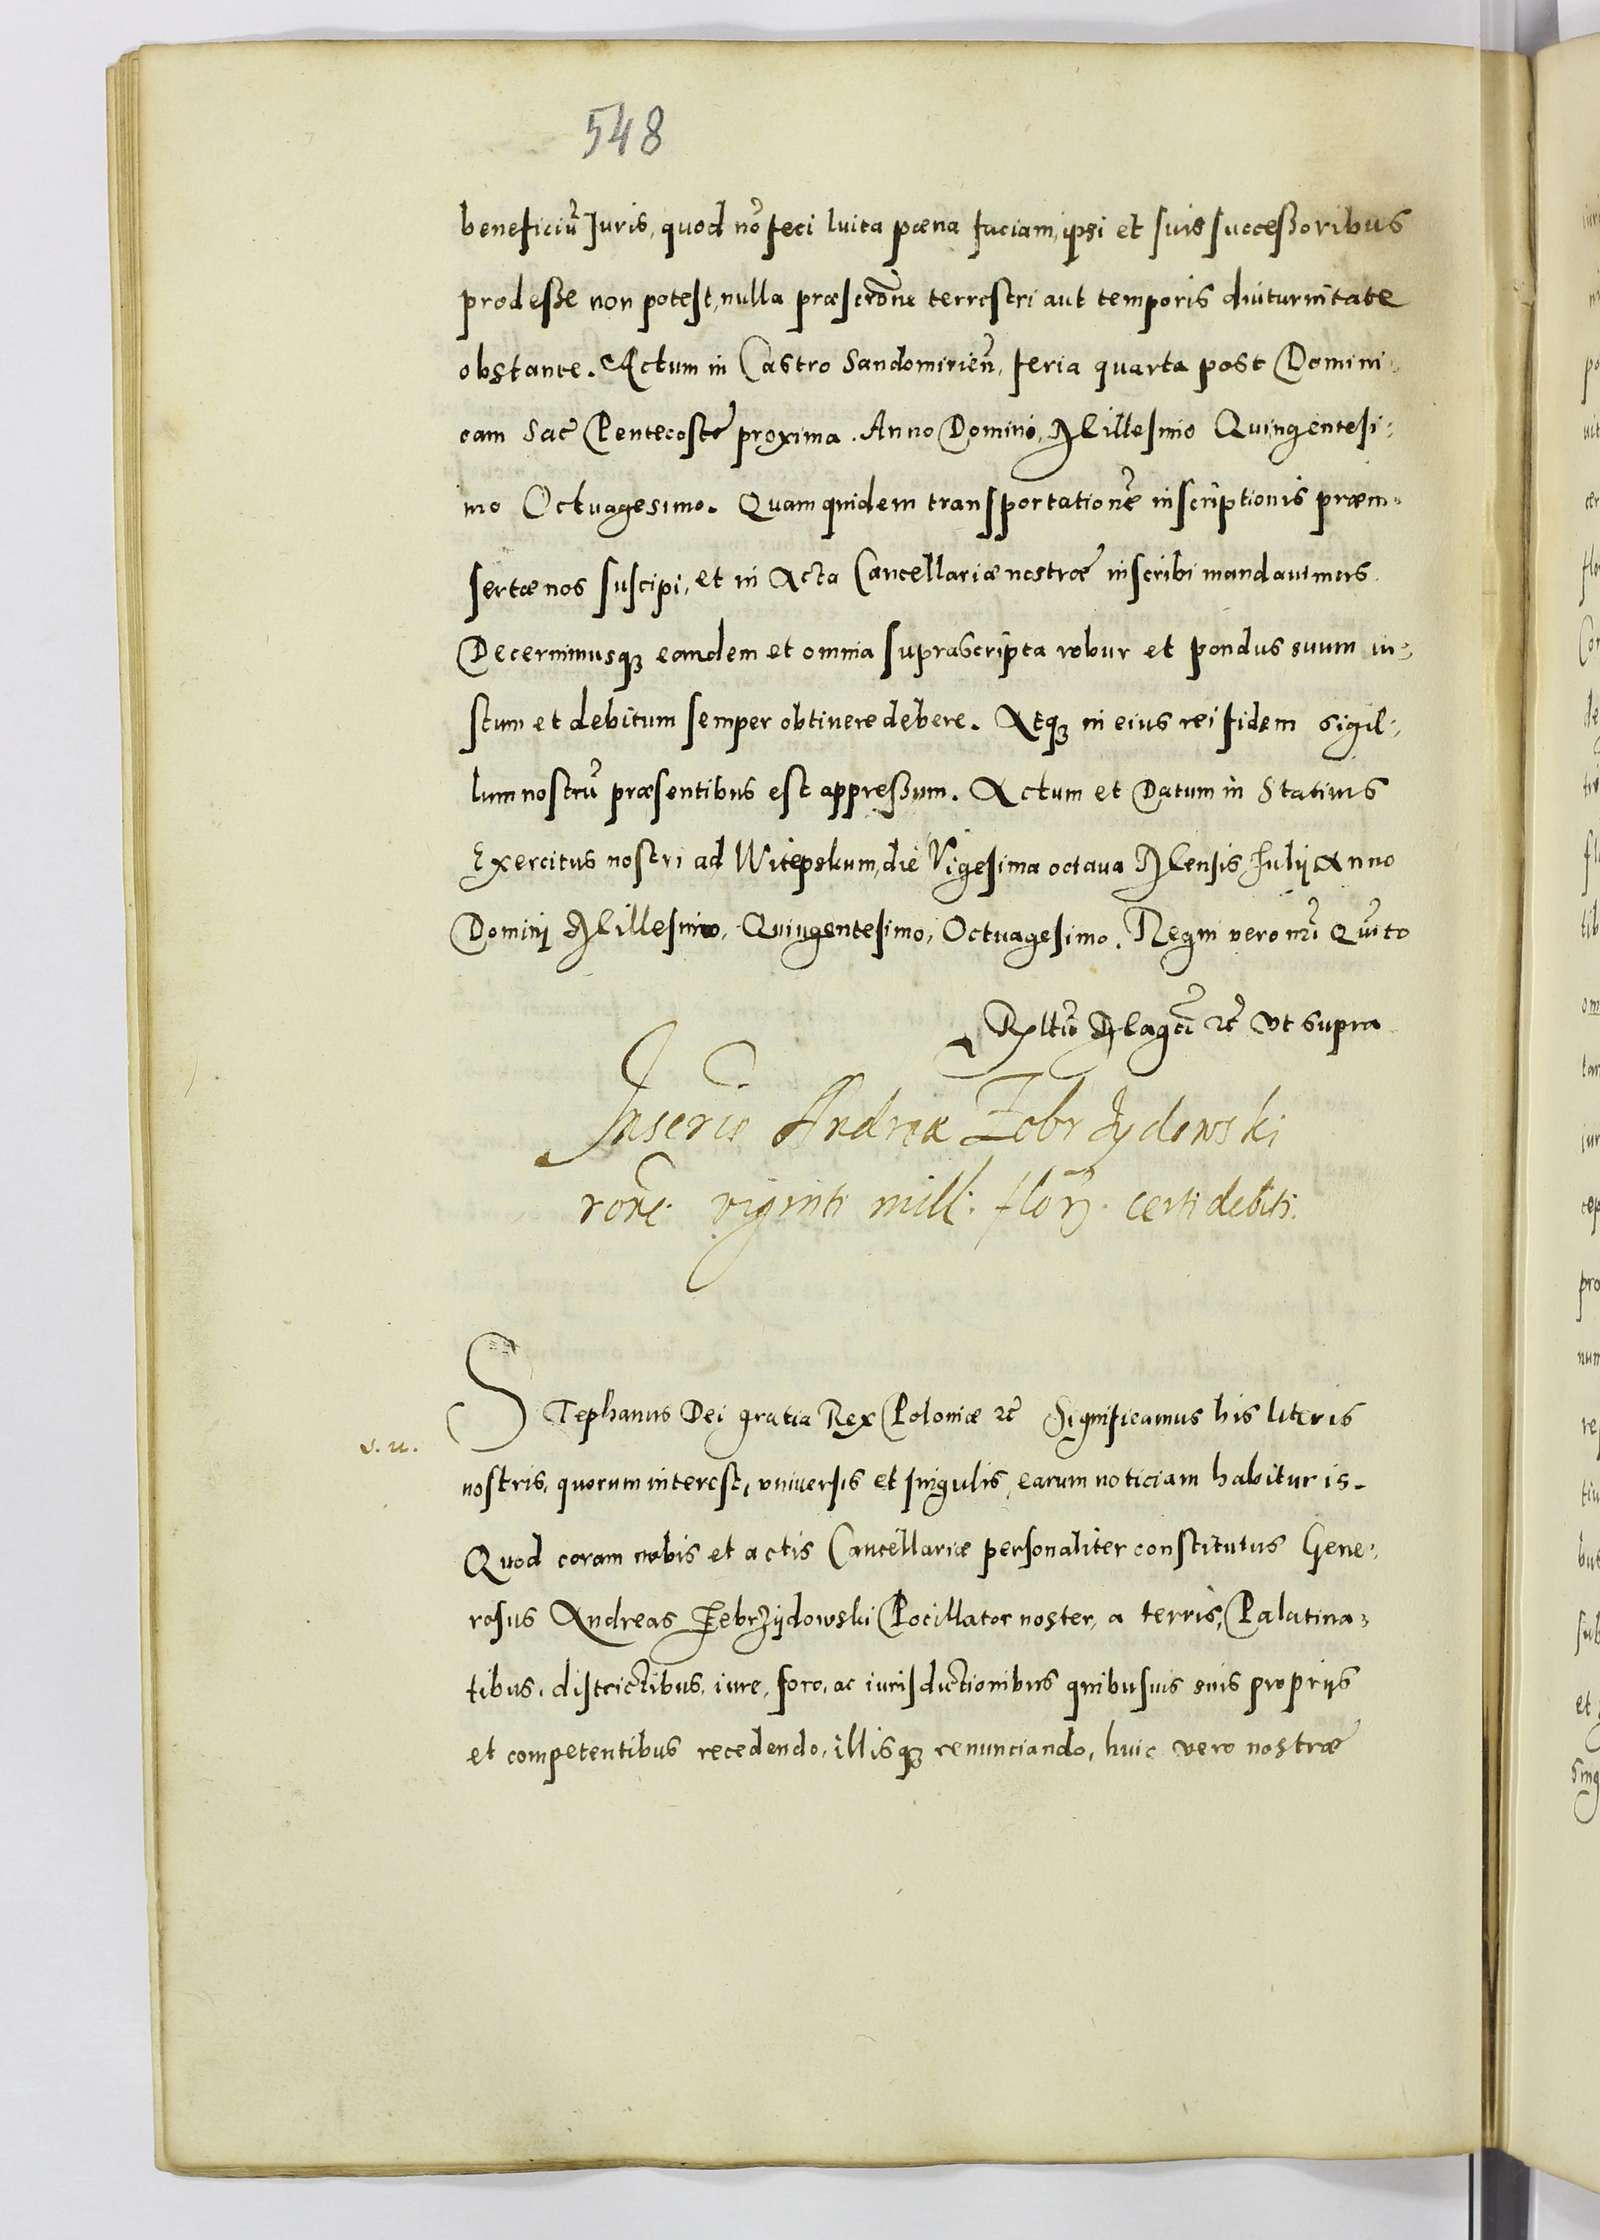 548
beneficiũ Iuris, quod nõ feci luita pœna faciam, ipsi et suis successoribus
prodesse non potest, nulla præscrõne terrestri aut temporis diuturnitate
obstante. Actum in Castro Sandomirien̄, feria quarta post Domini-
cam Sac̃ Pentecostẽ proxima. Anno Domini, Millesimo Quingentesi-
mo Octuagesimo. Quam quidem transportationẽ inscriptionis præin-
sertæ nos suscipi, et in Acta Cancellariæ nostræ inscribi mandauimus.
Decernimusqꝫ eandem et omnia suprascripta robur et pondus suum iu-
stum et debitum semper obtinere debere. Atqꝫ in eius rei fidem sigil-
lum nostrũ præsentibus est appressum. Actum et Datum in Statiuis
Exercitus nostri ad Witepskum, die Vigesima octaua Mensis Iulij Anno
Dominj Millesimo, Quingentesimo, Octuagesimo. Regni vero nr̃i Quĩto
Rltio Magci ꝛc̃ vt supra
Inscrio Andreæ Zebrzydowski
rõne viginti mill: flõr. certi debiti.
STephanus Dei gratia Rex Poloniæ ꝛc̃ Significamus his literis
s. u.
nostris, quorum interest, vniuersis et singulis, earum noticiam habituris.
Quod coram nobis et actis Cancellariæ personaliter constitutus Gene-
rosus Andreas Zebrzijdowski Pocillator noster, a terris, Palatina-
tibus, districtibus, iure, foro, ac iurisdictionibus quibusuis suis proprijs
et competentibus recedendo, illisqꝫ renunciando, huic vero nostræ